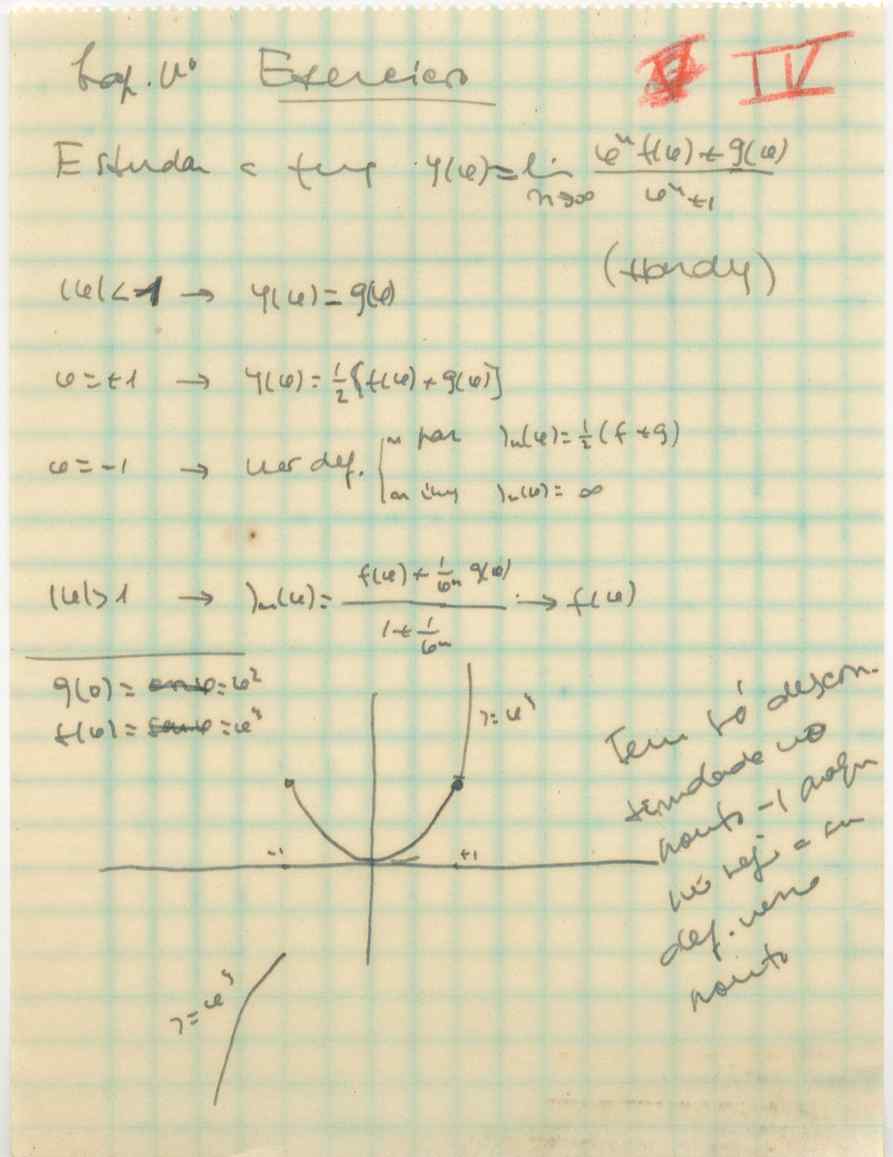 Cap. nº Exercício IV
Estudar a funç φ(x)=lim n→∞ (xⁿ f(x) + g(x)) / (xⁿ+1)
(Hardy)
|x|<1 → φ(x) = g(x)
x=+1 → φ(x) = 1/2 [f(x) + g(x)]
x=-1 → def. { n par yₙ(x)=1/2 (f+g)
yₙ(x) = ∞
|x|>1 → yₙ(x) = (f(x) + 1/xⁿ g(x)) / (1 + 1/xⁿ) → f(x)
g(x) = = x²
f(x) = = x³
y=x³
-1 +1
y=x³
Tem só descon-
tinuidade no
ponto -1
def. nesse
ponto